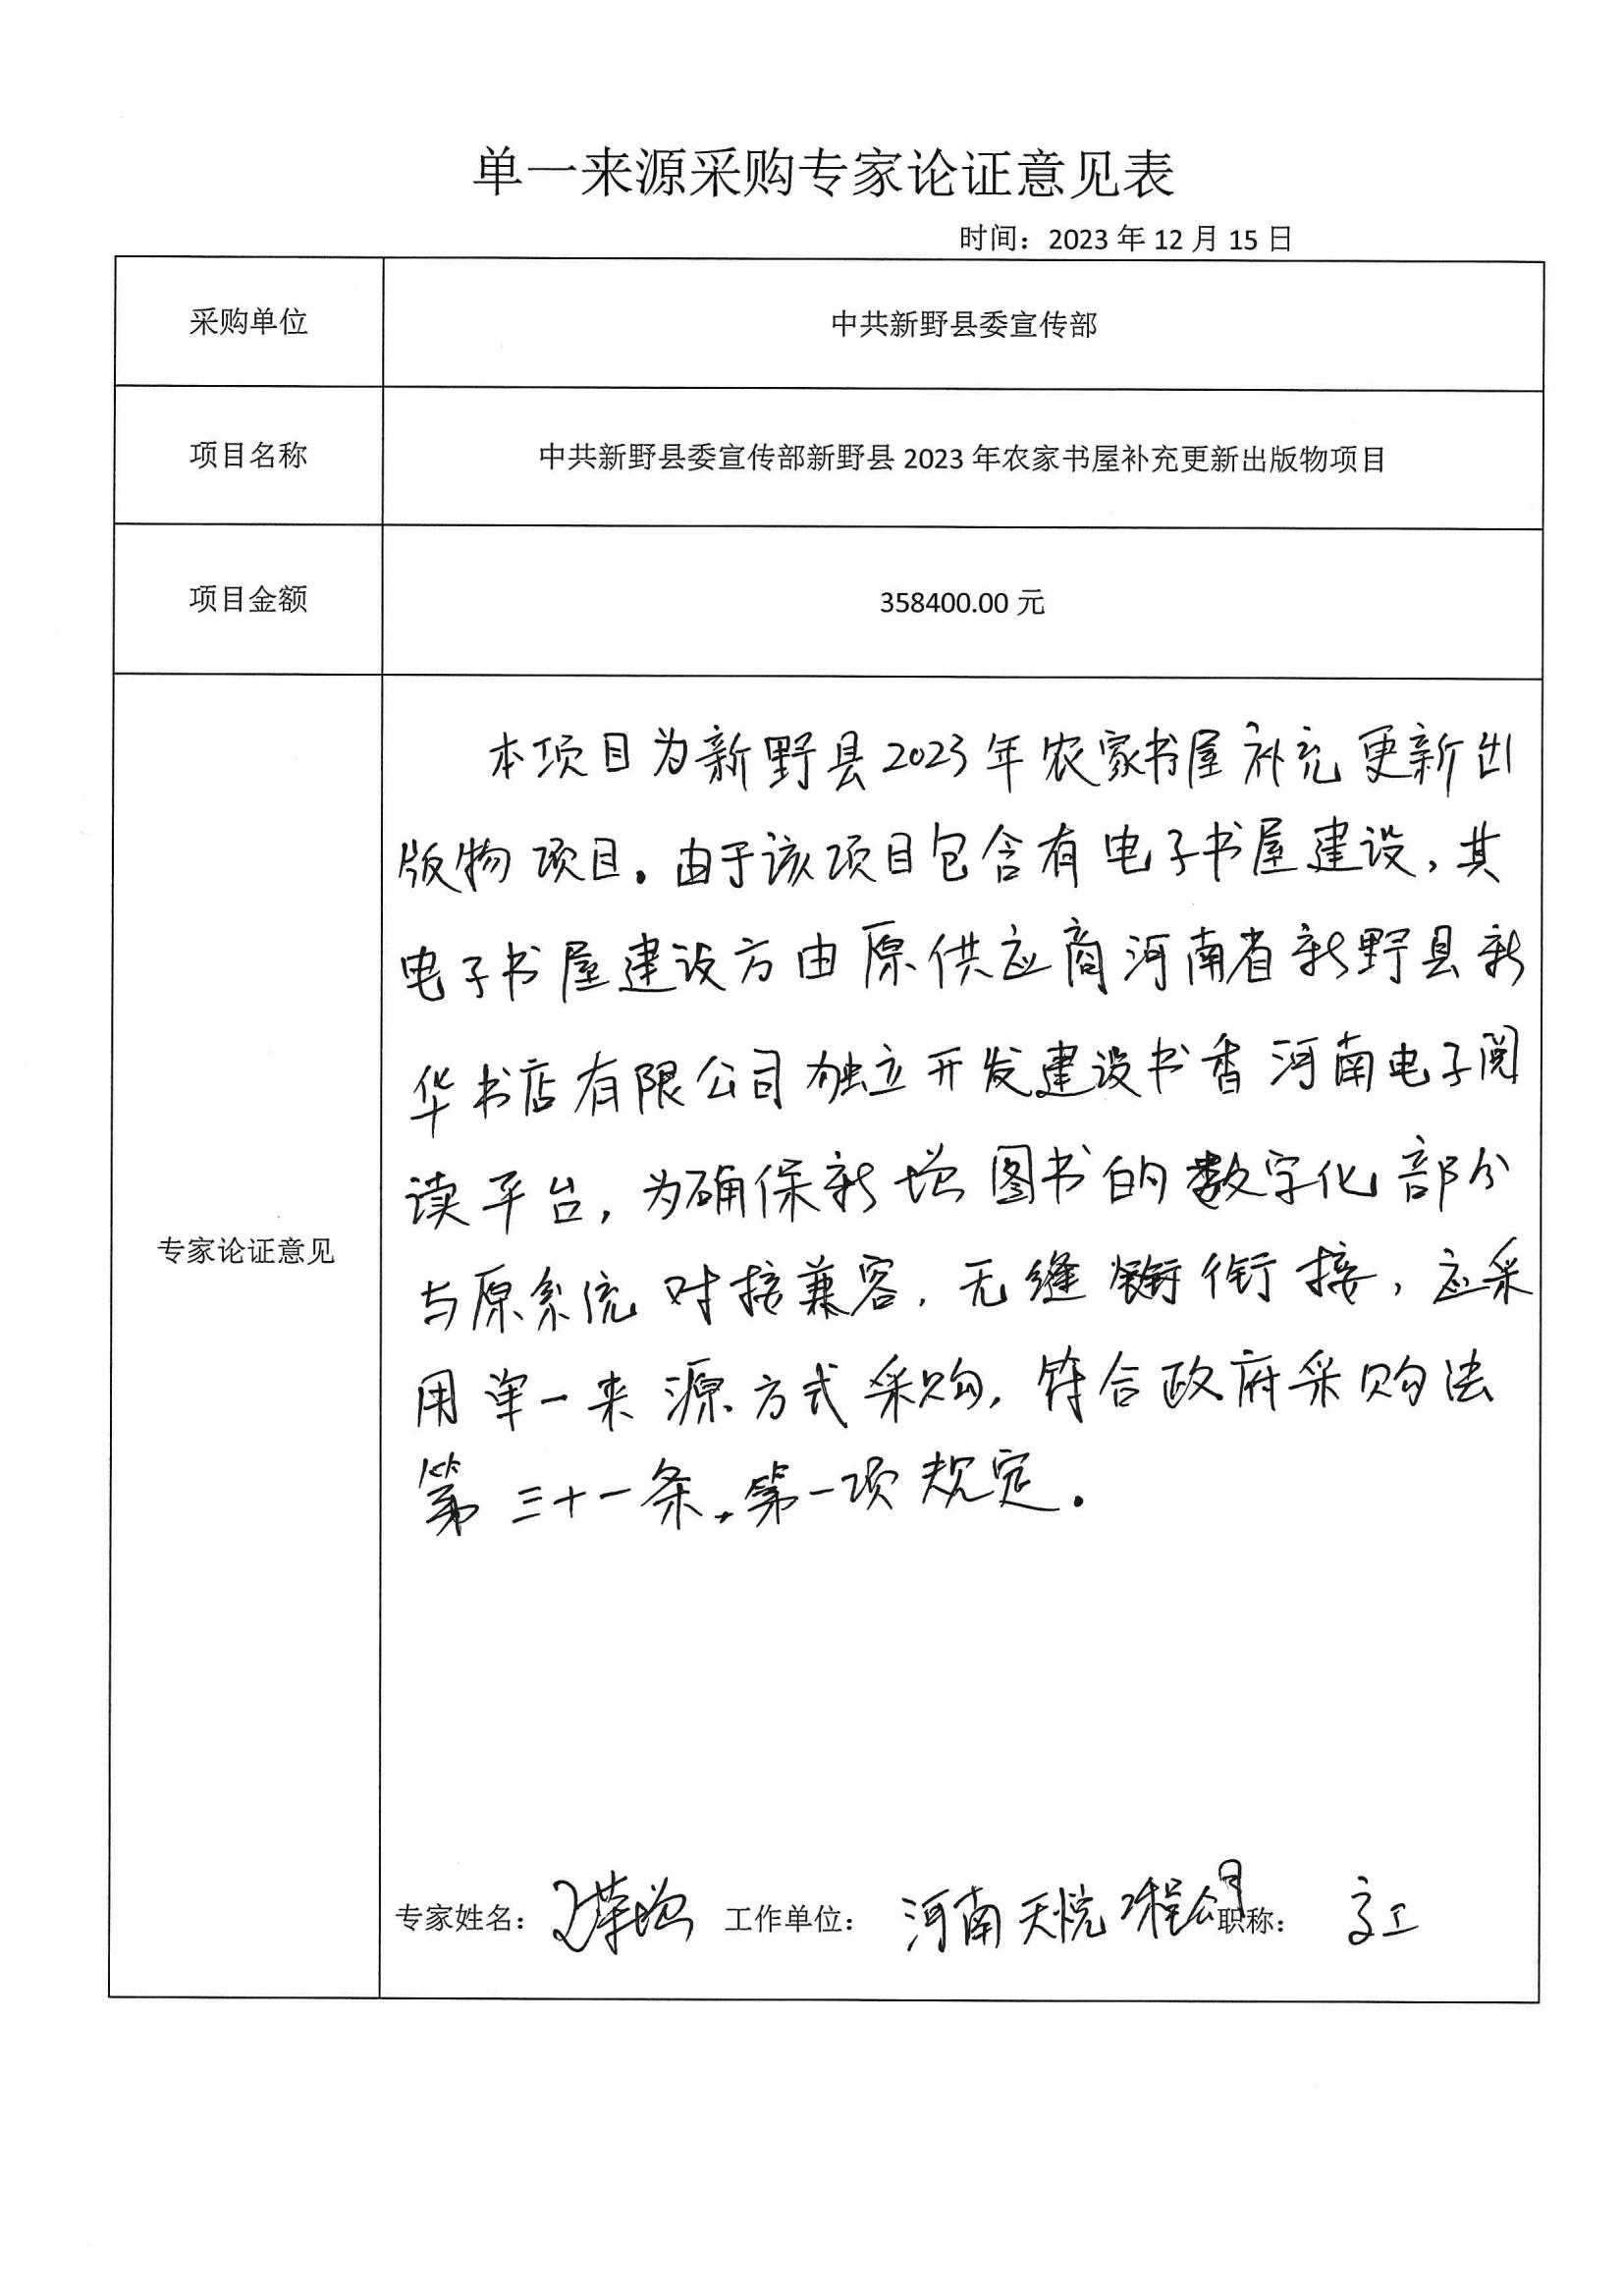 单一来源采购专家论证意见表
时间：2023 年 12 月 15 日
采购单位
中共新野县委宣传部
项目名称
中共新野县委宣传部新野县 2023 年农家书屋补充更新出版物项目
项目金额
358400.00 元
专家论证意见
本项目为新野县2023年农家书屋补充更新出
版物项目。由于该项目包含有电子书屋建设，其
电子书屋建设方由原供应商河南省新野县新
华书店有限公司独立开发建设书香河南电子阅
读平台，为确保新增图书的数字化部分
与原系统对接兼容，无缝衔接，应采
用单一来源方式采购，符合政府采购法
第三十一条，第一项规定。
专家姓名： 工作单位：河南天悦工程公司 职称：高工